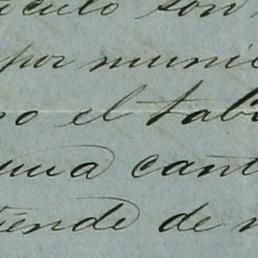 ículo son
por muni
o el tab
una cant
tiende de